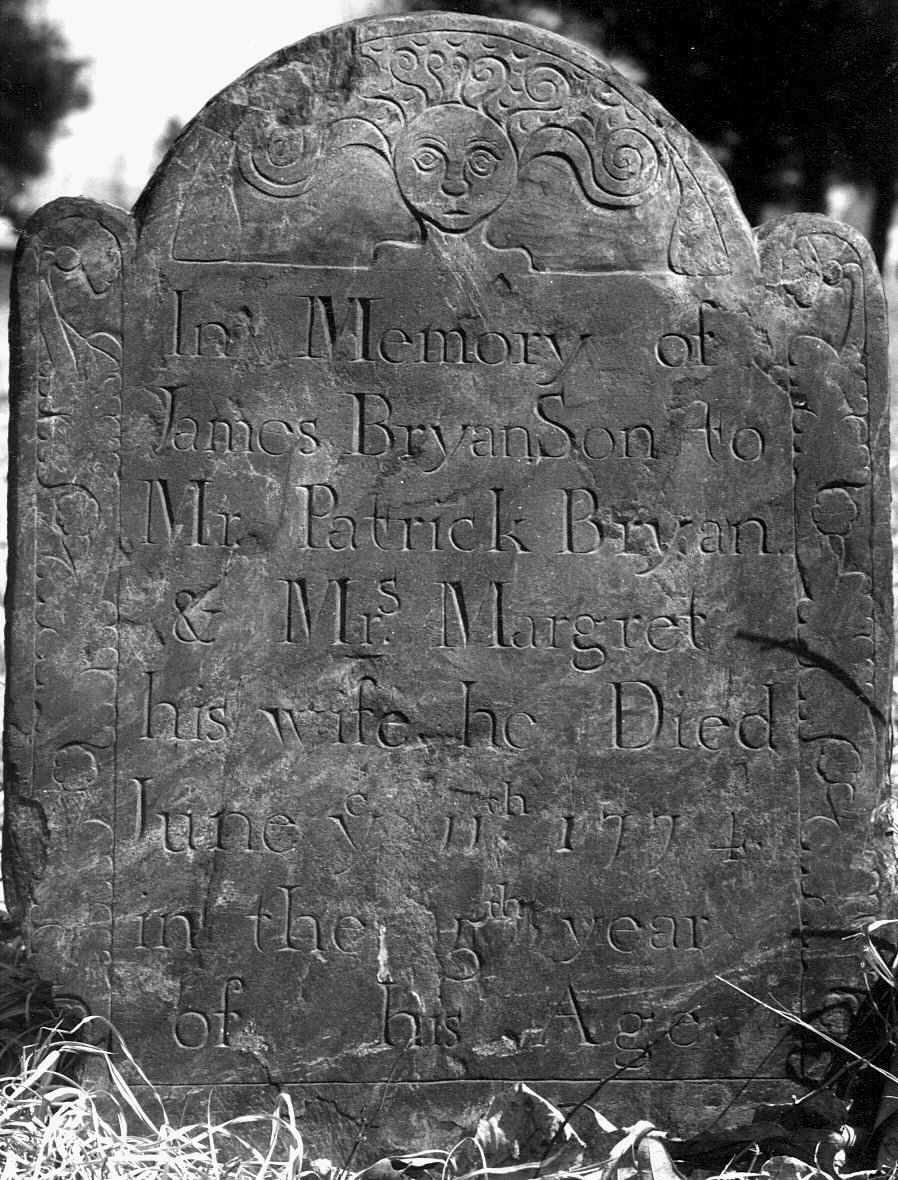 In Memory of
James Bryan Son to
Mr. Patrick Bryan.
& Mrs. Margret
his wife he Died
June ye 11th 1774.
in the 5th year
of his Age.